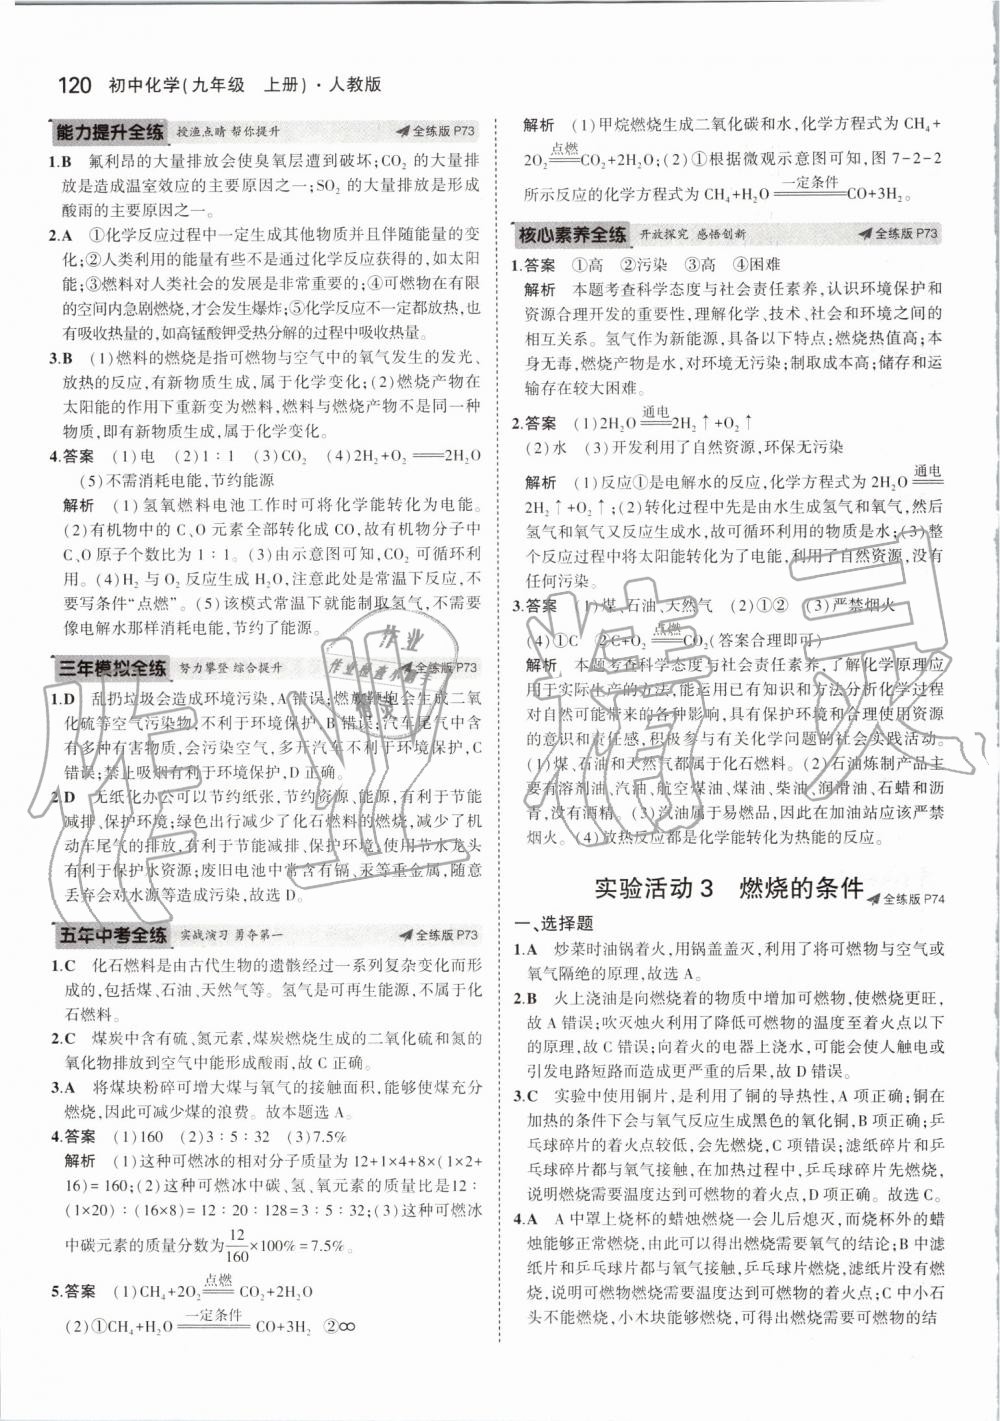 120 初中化学(九年级 上册)·人教版
能力提升全练 授渔点睛 帮你提升 全练版P73
1.B 氟利昂的大量排放会使臭氧层遭到破坏;CO₂的大量排
放是造成温室效应的主要原因之一;SO₂的大量排放是形成
酸雨的主要原因之一。
2.A ①化学反应过程中一定生成其他物质并且伴随能量的变
化;②人类利用的能量有些不是通过化学反应获得的,如太阳
能;③燃料对人类社会的发展是非常重要的;④可燃物在有限
的空间内急剧燃烧,才会发生爆炸;⑤化学反应不一定都放热,也
有吸收热量的,如高锰酸钾受热分解的过程中吸收热量。
3.B (1)燃料的燃烧是指可燃物与空气中的氧气发生的发光、
放热的反应,有新物质生成,属于化学变化;(2)燃烧产物在
太阳能的作用下重新变为燃料,燃料与燃烧产物不是同一种
物质,即有新物质生成,属于化学变化。
4.答案 (1)电 (2)1∶1 (3)CO₂ (4)2H₂+O₂═══2H₂O
(5)不需消耗电能,节约能源
解析 (1)氢氧燃料电池工作时可将化学能转化为电能。
(2)有机物中的C、O元素全部转化成CO,故有机物分子中
C、O原子个数比为1∶1。(3)由示意图可知,CO₂可循环利
用。(4)H₂与O₂反应生成H₂O,注意此处是常温下反应,不
要写条件“点燃”。(5)该模式常温下就能制取氢气,不需要
像电解水那样消耗电能,节约了能源。
三年模拟全练 努力攀登 综合提升 全练版P73
1.D 乱扔垃圾会造成环境污染,A错误;燃放鞭炮会生成二氧
化硫等空气污染物,不利于环境保护,B错误;汽车尾气中含
有多种有害物质,会污染空气,多开汽车不利于环境保护,C
错误;禁止吸烟有利于环境保护,D正确。
2.D 无纸化办公可以节约纸张,节约资源、能源,有利于节能
减排、保护环境;绿色出行减少了化石燃料的燃烧,减少了机
动车尾气的排放,有利于节能减排、保护环境;使用节水龙头
有利于保护水资源;废旧电池中含有镉、汞等重金属,随意
丢弃会对水源等造成污染,故选D。
五年中考全练 实战演习 勇夺第一 全练版P73
1.C 化石燃料是由古代生物的遗骸经过一系列复杂变化而形
成的,包括煤、石油、天然气等。氢气是可再生能源,不属于化
石燃料。
2.C 煤炭中含有硫、氮元素,煤炭燃烧生成的二氧化硫和氮的
氧化物排放到空气中能形成酸雨,故C正确。
3.A 将煤块粉碎可增大煤与氧气的接触面积,能够使煤充分
燃烧,因此可减少煤的浪费。故本题选A。
4.答案 (1)160 (2)3∶5∶32 (3)7.5%
解析 (1)这种可燃冰的相对分子质量为12+1×4+8×(1×2+
16)=160;(2)这种可燃冰中碳、氢、氧元素的质量比是12∶
(1×20)∶(16×8)=12∶20∶128=3∶5∶32;(3)这种可燃冰
中碳元素的质量分数为12/160×100%=7.5%。
5.答案 (1)CH₄+2O₂═点燃═CO₂+2H₂O
(2)①CH₄+H₂O═一定条件═CO+3H₂ ②
解析 (1)甲烷燃烧生成二氧化碳和水,化学方程式为CH₄+
2O₂═点燃═CO₂+2H₂O;(2)①根据微观示意图可知,图7-2-2
所示反应的化学方程式为CH₄+H₂O═一定条件═CO+3H₂。
核心素养全练 开放探究 感悟创新 全练版P73
1.答案 ①高 ②污染 ③高 ④困难
解析 本题考查科学态度与社会责任素养,认识环境保护和
资源合理开发的重要性,理解化学、技术、社会和环境之间的
相互关系。氢气作为新能源,具备以下特点:燃烧热值高;本
身无毒,燃烧产物是水,对环境无污染;制取成本高;储存和运
输存在较大困难。
2.答案 (1)2H₂O═通电═2H₂↑+O₂↑
(2)水 (3)开发利用了自然资源,环保无污染
解析 (1)反应①是电解水的反应,化学方程式为2H₂O═通电═
2H₂↑+O₂↑;(2)转化过程中先是由水生成氢气和氧气,然后
氢气和氧气又反应生成水,故可循环利用的物质是水;(3)整
个反应过程中将太阳能转化为了电能,利用了自然资源,没有
任何污染。
3.答案 (1)煤、石油、天然气 (2)①② (3)严禁烟火
(4)①C ②C+O₂═点燃═CO₂(答案合理即可)
解析 本题考查科学态度与社会责任素养,了解化学原理应
用于实际生产的方法,能运用已有知识和方法分析化学过程
对自然可能带来的各种影响,具有保护环境和合理使用资源
的意识和责任感,积极参与有关化学问题的社会实践活动。
(1)煤、石油和天然气都属于化石燃料。(2)石油炼制产品主
要有溶剂油、汽油、航空煤油、煤油、柴油、润滑油、石蜡和沥青,
没有酒精。(3)汽油属于易燃品,因此在加油站应该严禁
烟火。(4)放热反应都是化学能转化为热能的反应。
实验活动3 燃烧的条件 全练版P74
一、选择题
1.A 炒菜时油锅着火,用锅盖盖灭,利用了将可燃物与空气或
氧气隔绝的原理,故选A。
2.B 火上浇油是向燃烧着的物质中增加可燃物,使燃烧更旺,
故A错误;吹灭烛火利用了降低可燃物的温度至着火点以下
的原理,故C错误;向着火的电器上浇水,可能会使人触电或
引发电路短路而造成更严重的后果,故D错误。
3.C 实验中使用铜片,是利用了铜的导热性,A项正确;铜在
加热的条件下会与氧气反应生成黑色的氧化铜,B项正确;乒
乓球碎片的着火点较低,会先燃烧,C项错误;滤纸碎片和乒
乓球碎片都与氧气接触,在加热过程中,乒乓球碎片先燃烧,
说明燃烧需要温度达到可燃物的着火点,D项正确。故选C。
4.A A中罩上烧杯的蜡烛燃烧一会儿后熄灭,而烧杯外的蜡
烛能够正常燃烧,由此可以得出燃烧需要氧气的结论;B中滤
纸碎片和乒乓球碎片都与氧气接触,乒乓球碎片比滤纸先燃
烧,说明可燃物燃烧需要温度达到可燃物的着火点;C中小石
头不能燃烧,小木块能够燃烧,可得出燃烧需要可燃物的结
作业
作业检查小助手
精灵
作业精灵